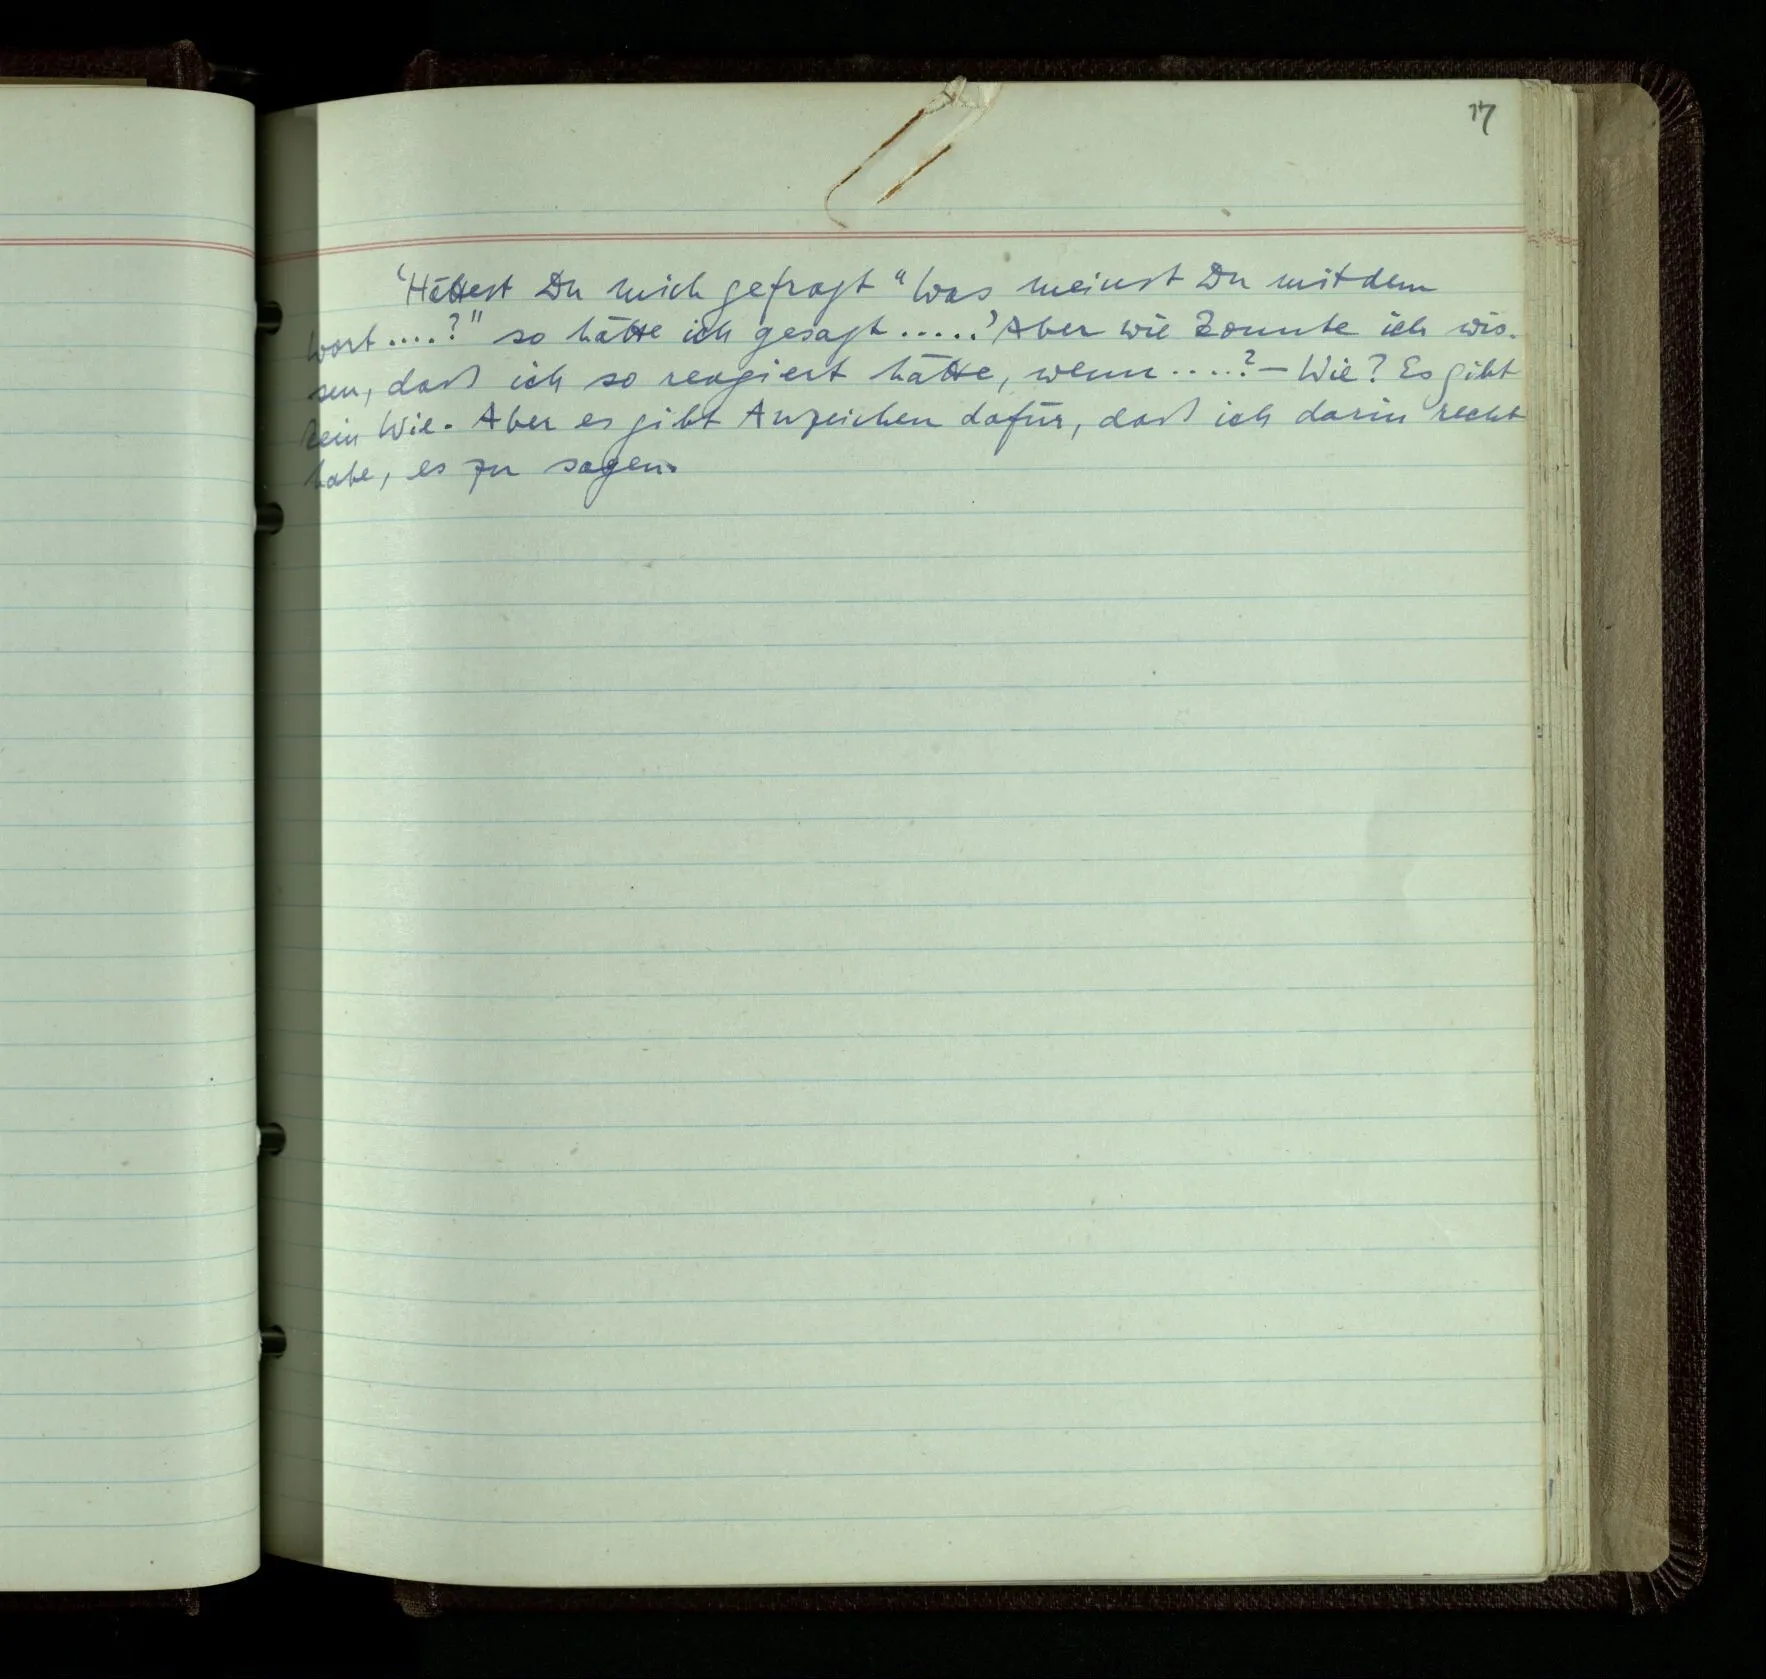 17
‘Hättest Du mich gefragt “Was meinst Du mit dem
Wort ....?” so hätte ich gesagt .....’ Aber wie konnte ich wis-
sen, daß ich so reagiert hätte, wenn .....? – Wie? Es gibt
kein Wie. Aber es gibt Anzeichen dafür, daß ich darin recht
habe, es zu sagen.